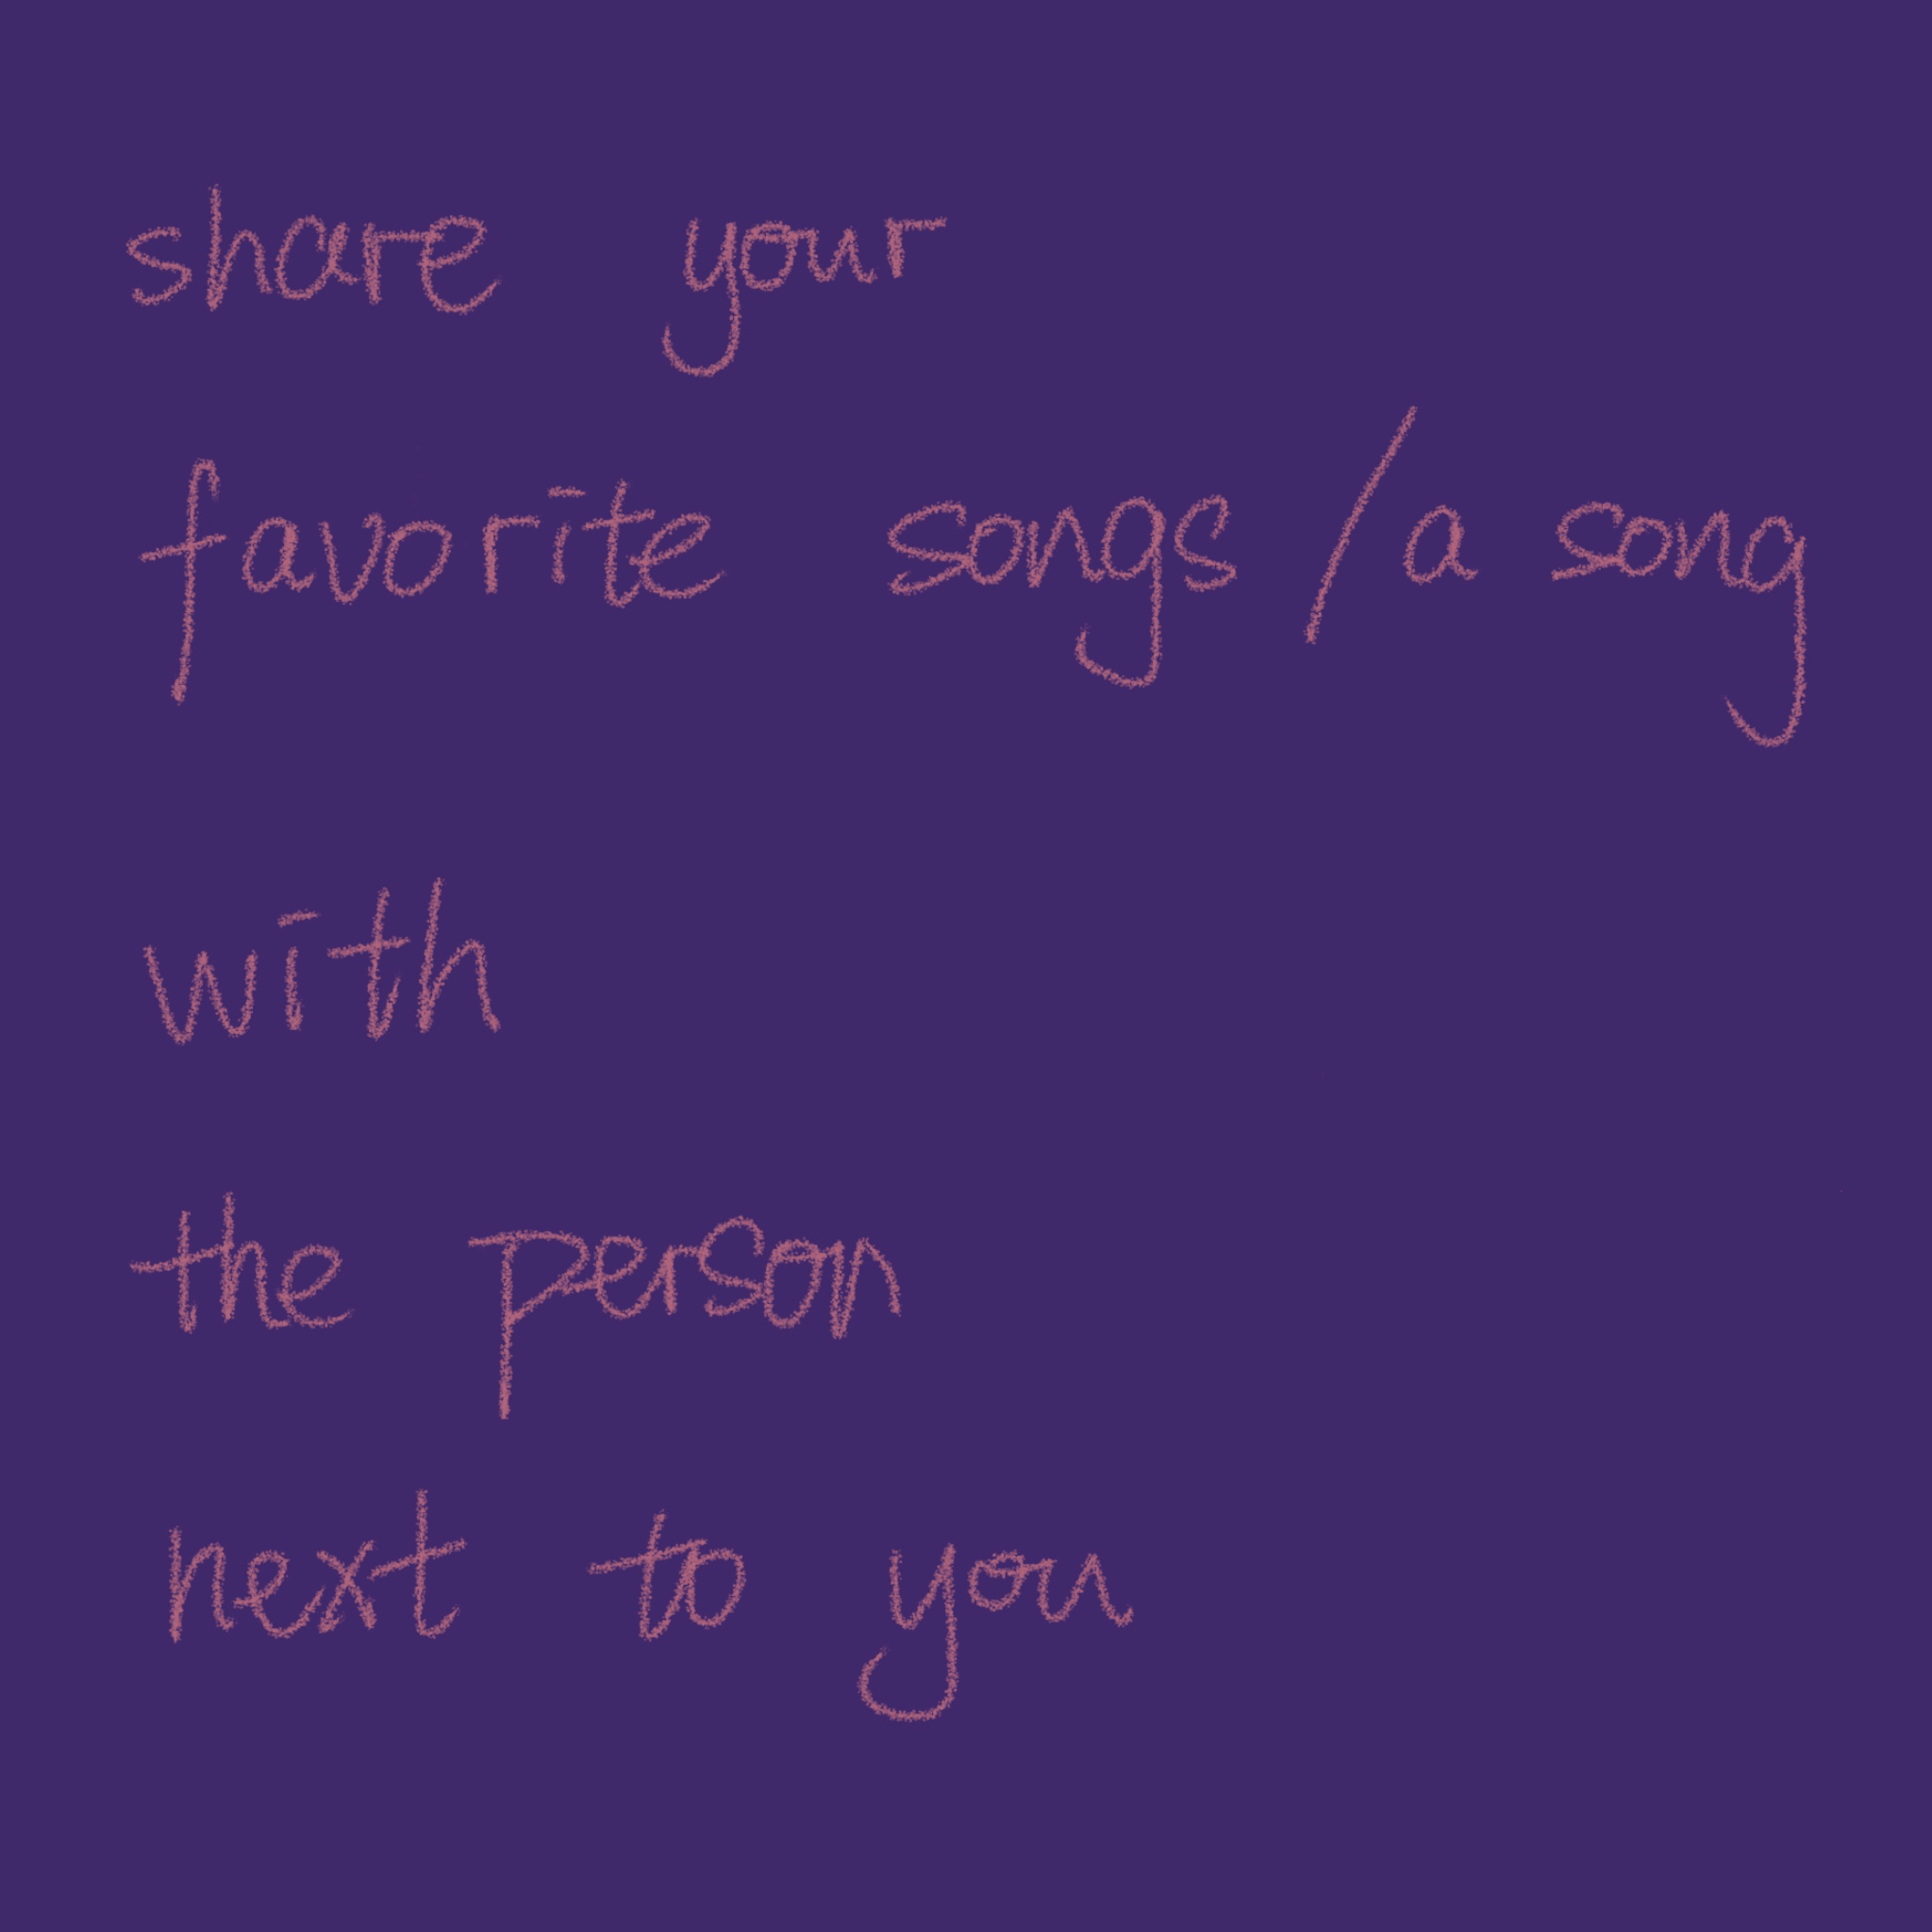 share your
favorite songs / a song
with
the person
next to you